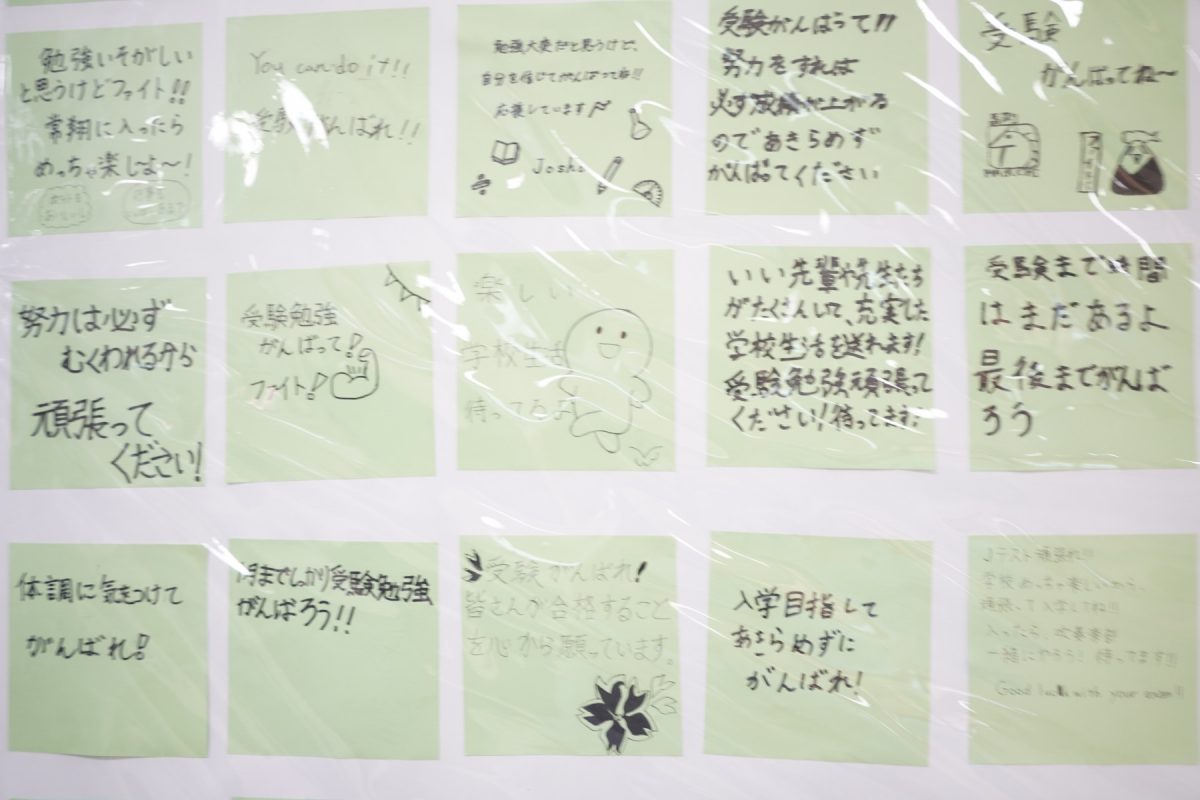 勉強いそがしい
と思うけどファイト!!
常翔に入ったら
めっちゃ楽しーよ〜!
You can do it!!
受験がんばれ!!
勉強大変だと思うけど、
自分を信じてがんばってね!!
応援しています
Josho
受験がんばって!!
努力をすれば
必ず成績が上がる
のであきらめず
がんばてください
受験
がんばってね〜
努力は必ず
むくわれるから
頑張って
ください!
受験勉強
がんばって!
ファイト!
楽しい
学校生活
待ってるよ
いい先輩や先生たち
がたくさんいて、充実した
学校生活を送れます!
受験勉強頑張って
ください!待ってます!
受験まで時間
はまだあるよ
最後までがんば
ろう
体調に気をつけて
がんばれ!
月までしっかり受験勉強
がんばろう!!
受験がんばれ!
皆さんが合格すること
を心から願っています。
入学目指して
あきらめずに
がんばれ!
Jテスト頑張れ!!
学校めっちゃ楽しいから、
頑張って入学してね!!
入ったら、吹奏楽部
一緒にやろう!待ってます!!
Good luck with your exam!!